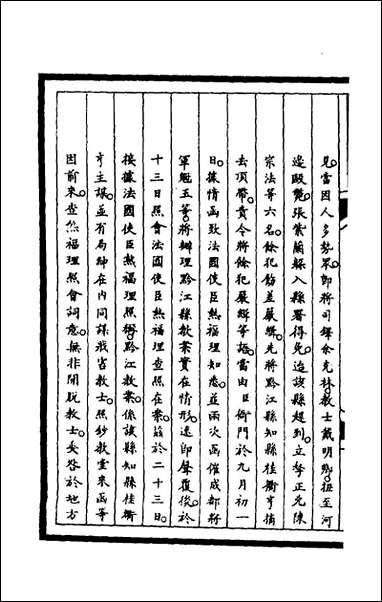 見當因人多勢眾即將司鐸余克林教士戴明卿扭至河
邊毆斃張紫蘭躲入縣署得免迨該縣趕到立拏正兇陳
宗法等六名餘犯飭差嚴緝先將黔江縣知縣桂衢亨摘
去頂帶責令將餘犯嚴緝等語當由臣衙門於九月初一
日據情函致法國使臣熱福理知悉並兩次函催成都將
軍魁玉等將辦理黔江縣教案實在情形迅即聲復後於
十三日照會法國使臣熱福理查照在案茲於二十三日
接據法國使臣熱福理照稱黔江教案係該縣知縣桂衢
亨主謀並有局紳在內同謀戕害教士照鈔教堂來函等
因前來查熱福理照會詞意無非開脫教士委咎於地方